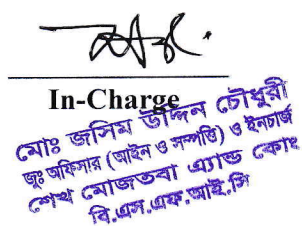 In-Charge
মোঃ জসিম উদ্দিন চৌধুরী
জুঃ অফিসার (আইন ও সম্পত্তি) ও ইনচার্জ
শেখ মোজতবা এ্যান্ড কোং
বি.এস.এফ.আই.সি